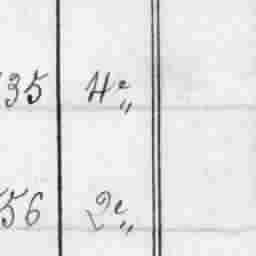 35 4e„
56 2e„